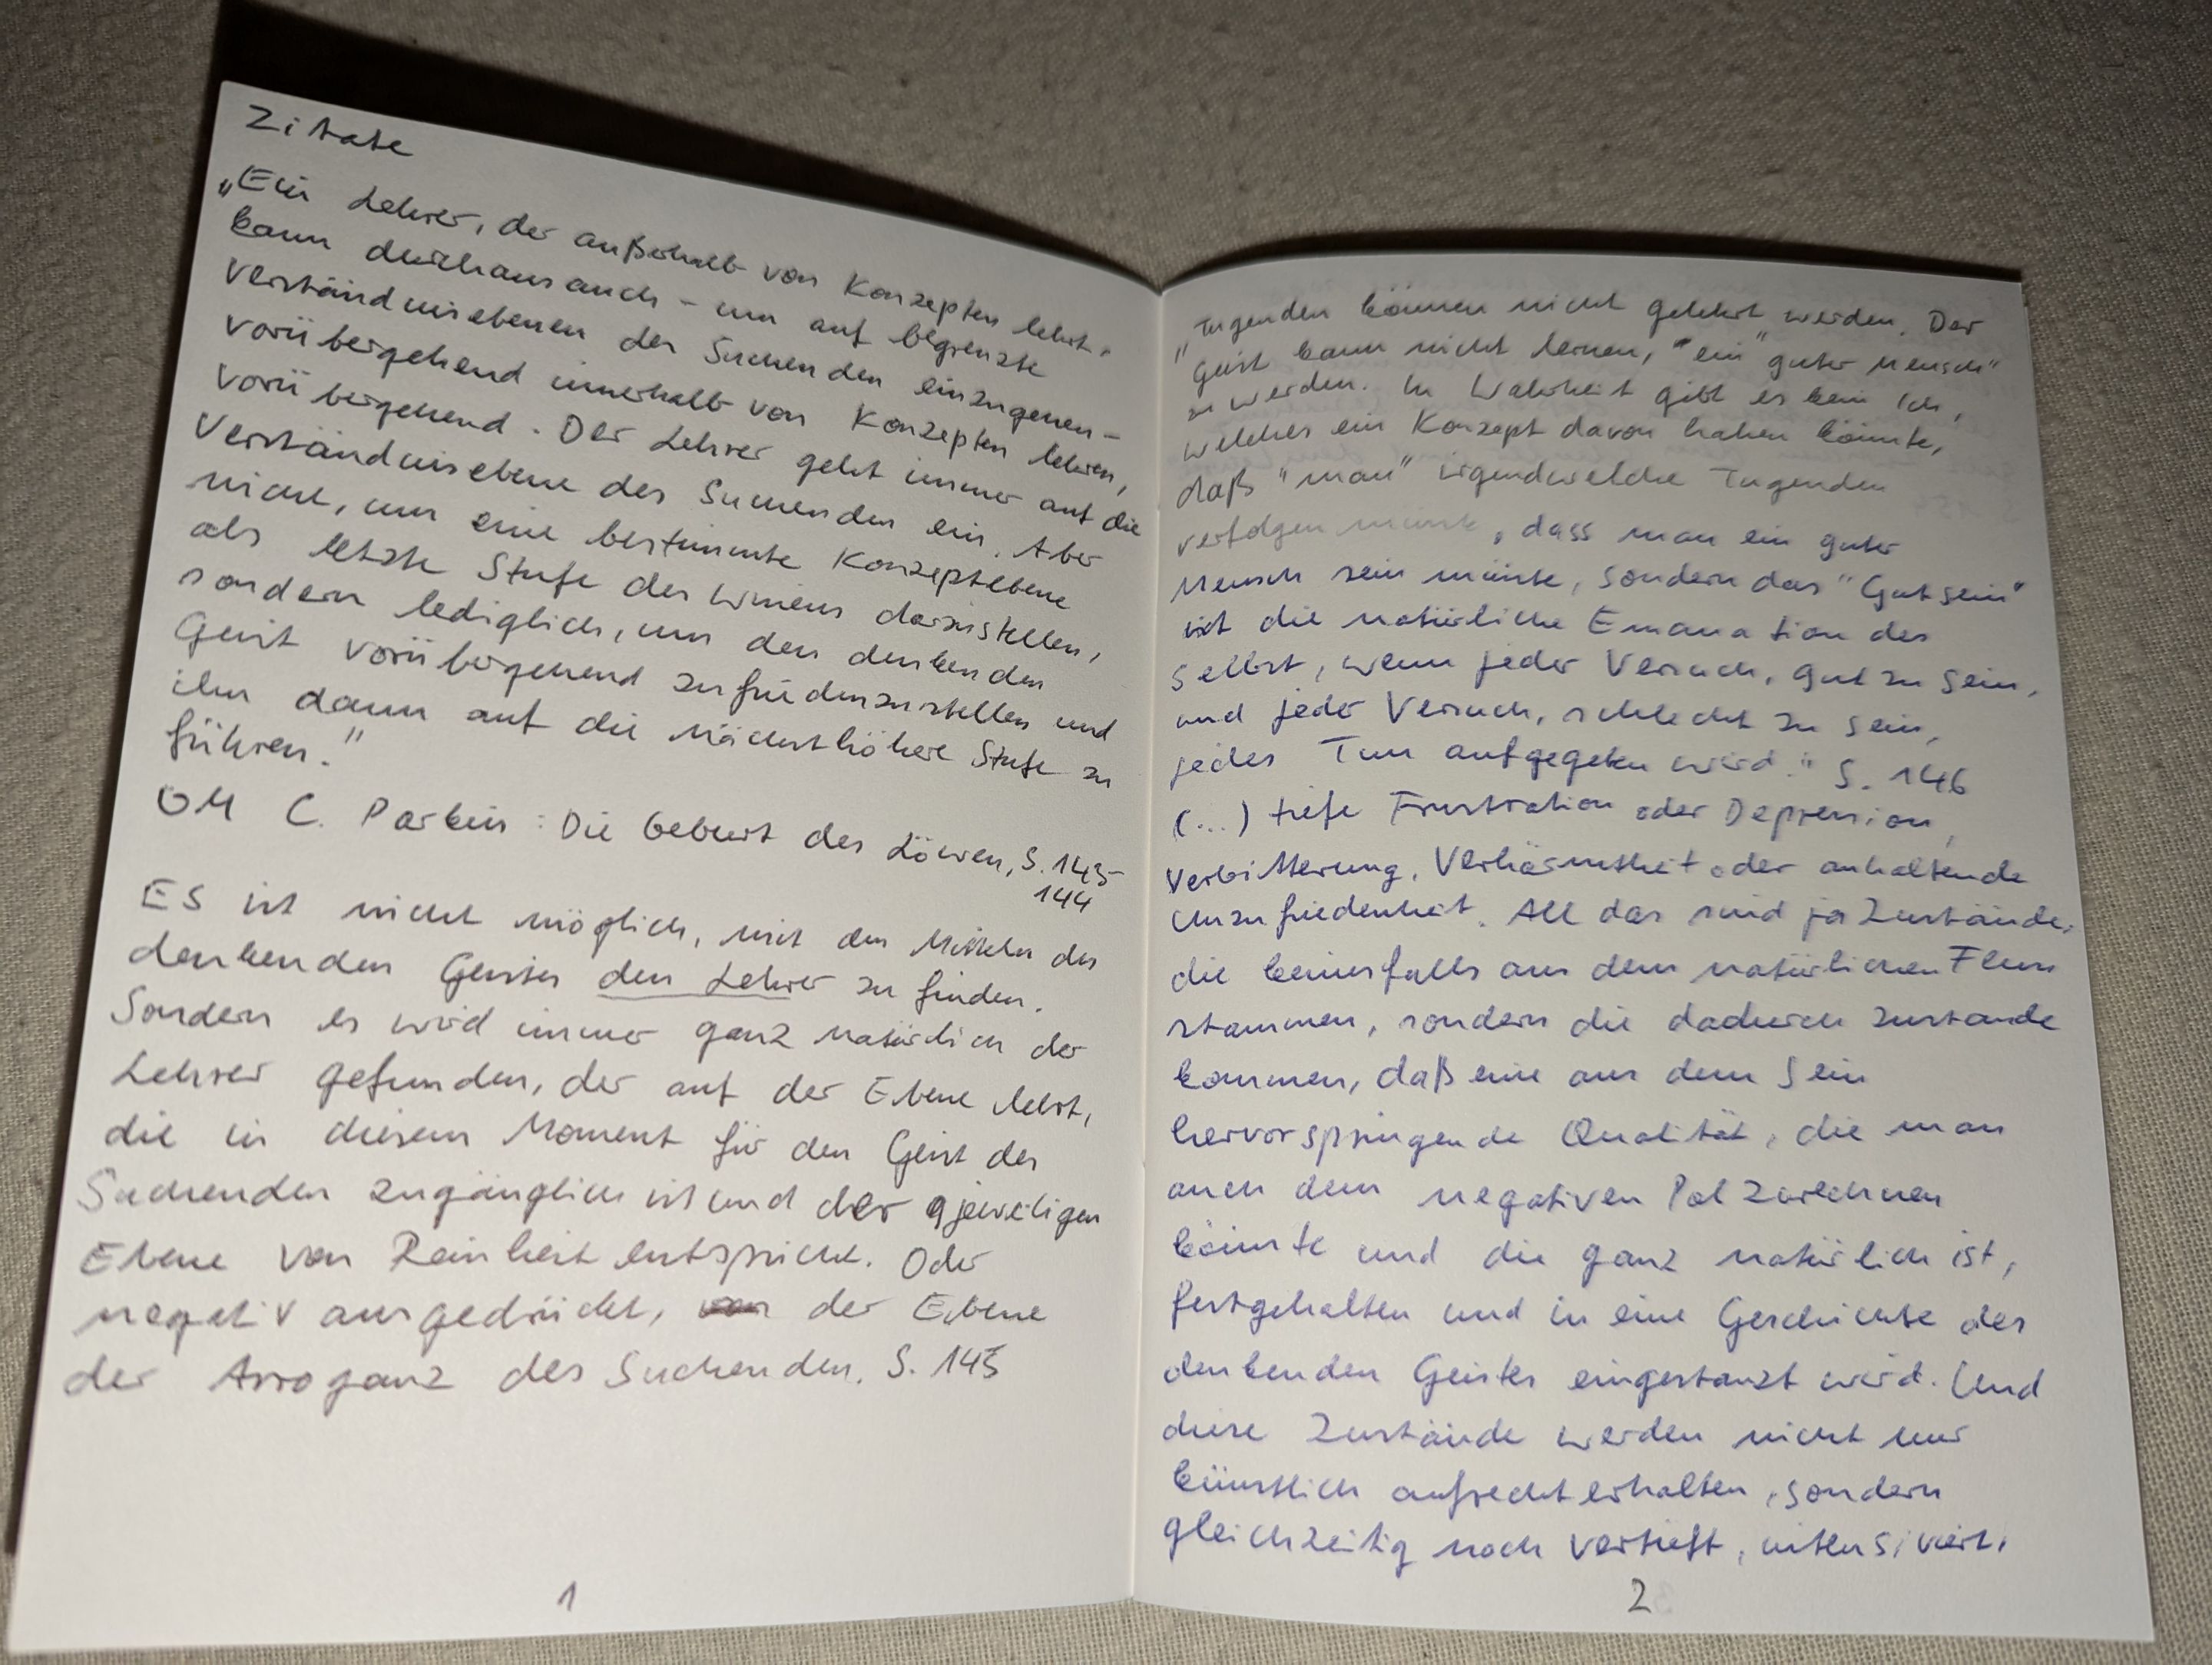 Zitate
„Ein Lehrer, der außerhalb von Konzepten lehrt,
kann durchaus auch – um auf begrenzte
Verständnisebenen des Suchenden einzugehen –
vorübergehend innerhalb von Konzepten lehren,
vorübergehend. Der Lehrer geht immer auf die
Verständnisebene des Suchenden ein. Aber
nicht, um eine bestimmte Konzeptebene
als letzte Stufe des Wissens darzustellen,
sondern lediglich, um den denkenden
Geist vorübergehend zufriedenzustellen und
ihn dann auf die nächsthöhere Stufe zu
führen."
OM C. Parkin: Die Geburt des Löwen, S. 143-
144
ES ist nicht möglich, mit den Mitteln des
denkenden Geistes den Lehrer zu finden.
Sondern es wird immer ganz natürlich der
Lehrer gefunden, der auf der Ebene lehrt,
die in diesem Moment für den Geist des
Suchenden zugänglich ist und der jeweiligen
Ebene von Reinheit entspricht. Oder
negativ ausgedrückt, der Ebene
der Arroganz des Suchenden. S. 145
1
"Tugenden können nicht gelehrt werden. Der
Geist kann nicht lernen, "ein guter Mensch"
zu werden. In Wahrheit gibt es kein Ich,
welches ein Konzept davon haben könnte,
daß "man" irgendwelche Tugenden
verfolgen müsste, dass man ein guter
Mensch sein müsste, sondern das "Gutsein"
ist die natürliche Emanation des
Selbst, wenn jeder Versuch, gut zu sein,
und jeder Versuch, schlecht zu sein,
jedes Tun aufgegeben wird." S. 146
(...) tiefe Frustration oder Depression,
Verbitterung, Verhärmtheit oder anhaltende
Unzufriedenheit. All das sind ja Zustände,
die keinesfalls aus dem natürlichen Fluss
stammen, sondern die dadurch zustande
kommen, daß eine aus dem Sein
hervorspringende Qualität, die man
auch dem negativen Pol zurechnen
könnte und die ganz natürlich ist,
festgehalten und in eine Geschichte des
denkenden Geistes eingestanzt wird. Und
diese Zustände werden nicht nur
künstlich aufrechterhalten, sondern
gleichzeitig noch vertieft, intensiviert.
2